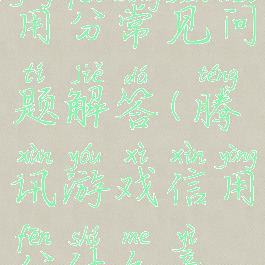 用分常见问
tí jiě dá téng
题解答(腾
xùn yóu xì xìn yòng
讯游戏信用
fēn shì me yì